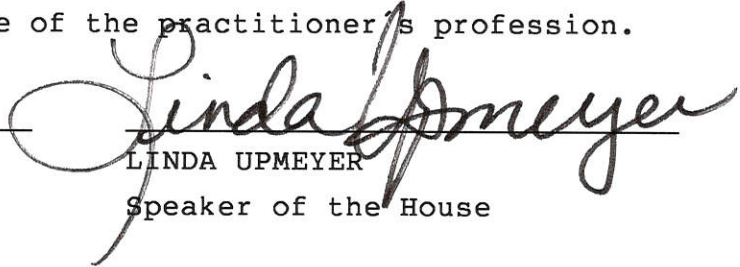 e of the practitioner's profession.
Linda Upmeyer
LINDA UPMEYER
Speaker of the House